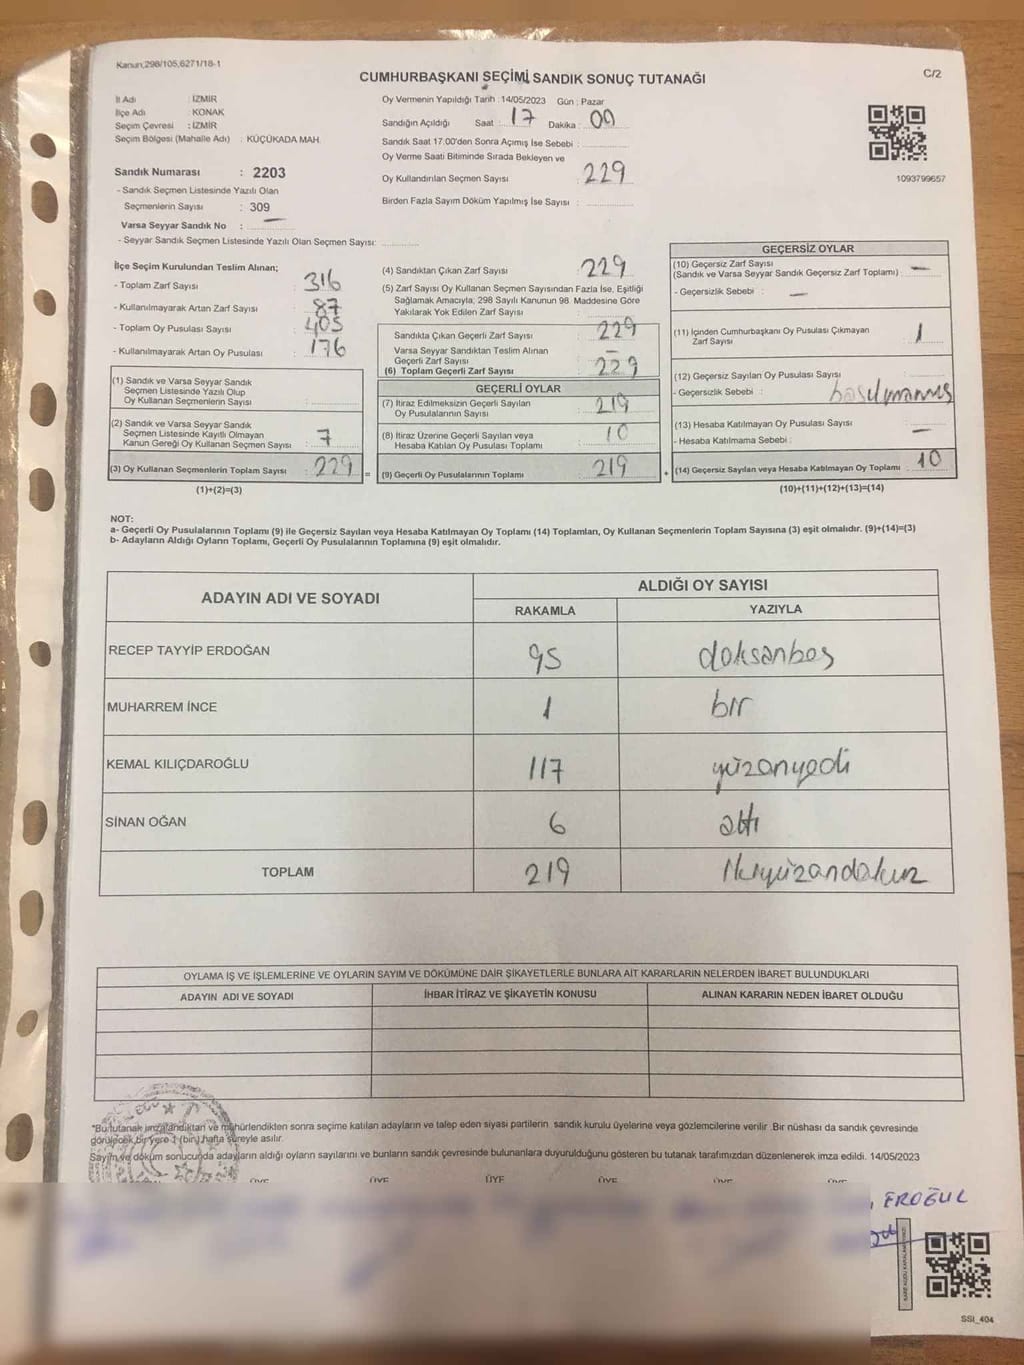 Kanun,298/105,6271/18-1
CUMHURBAŞKANI SEÇİMİ SANDIK SONUÇ TUTANAĞI
C/2
İl Adı : İZMİR
İlçe Adı : KONAK
Seçim Çevresi : İZMİR
Seçim Bölgesi (Mahalle Adı) : KÜÇÜKADA MAH
Oy Vermenin Yapıldığı Tarih : 14/05/2023 Gün : Pazar
Sandığın Açıldığı Saat : 17 Dakika : 00
Sandık Saat 17.00'den Sonra Açmış İse Sebebi :
Oy Verme Saati Bitiminde Sırada Bekleyen ve
Oy Kullandırılan Seçmen Sayısı : 229
Birden Fazla Sayım Döküm Yapılmış İse Sayısı :
1093799657
Sandık Numarası : 2203
- Sandık Seçmen Listesinde Yazılı Olan
Seçmenlerin Sayısı : 309
Varsa Seyyar Sandık No : —
- Seyyar Sandık Seçmen Listesinde Yazılı Olan Seçmen Sayısı:
İlçe Seçim Kurulundan Teslim Alınan;
- Toplam Zarf Sayısı : 316
- Kullanılmayarak Artan Zarf Sayısı : 87
- Toplam Oy Pusulası Sayısı : 405
- Kullanılmayarak Artan Oy Pusulası : 176
(1) Sandık ve Varsa Seyyar Sandık
Seçmen Listesinde Yazılı Olup
Oy Kullanan Seçmenlerin Sayısı :
(2) Sandık ve Varsa Seyyar Sandık
Seçmen Listesinde Kayıtlı Olmayan
Kanun Gereği Oy Kullanan Seçmen Sayısı : 7
(3) Oy Kullanan Seçmenlerin Toplam Sayısı : 229 =
(1)+(2)=(3)
(4) Sandıktan Çıkan Zarf Sayısı : 229
(5) Zarf Sayısı Oy Kullanan Seçmen Sayısından Fazla İse, Eşitliği
Sağlamak Amacıyla, 298 Sayılı Kanunun 98. Maddesine Göre
Yakılarak Yok Edilen Zarf Sayısı :
Sandıkta Çıkan Geçerli Zarf Sayısı : 229
Varsa Seyyar Sandıktan Teslim Alınan
Geçerli Zarf Sayısı : —
(6) Toplam Geçerli Zarf Sayısı : 229
GEÇERLİ OYLAR
(7) İtiraz Edilmeksizin Geçerli Sayılan
Oy Pusulalarının Sayısı : 219
(8) İtiraz Üzerine Geçerli Sayılan veya
Hesaba Katılan Oy Pusulası Sayısı : 10
(9) Geçerli Oy Pusulalarının Toplamı : 219 +
GEÇERSİZ OYLAR
(10) Geçersiz Zarf Sayısı
(Sandık ve Varsa Seyyar Sandık Geçersiz Zarf Toplamı) : —
- Geçersizlik Sebebi : —
(11) İçinden Cumhurbaşkanı Oy Pusulası Çıkmayan
Zarf Sayısı : 1
(12) Geçersiz Sayılan Oy Pusulası Sayısı :
- Geçersizlik Sebebi : basılmamış
(13) Hesaba Katılmayan Oy Pusulası Sayısı : —
- Hesaba Katılmama Sebebi :
(14) Geçersiz Sayılan veya Hesaba Katılmayan Oy Toplamı : 10
(10)+(11)+(12)+(13)=(14)
NOT:
a- Geçerli Oy Pusulalarının Toplamı (9) ile Geçersiz Sayılan veya Hesaba Katılmayan Oy Toplamı (14) Toplamları, Oy Kullanan Seçmenlerin Toplam Sayısına (3) eşit olmalıdır. (9)+(14)=(3)
b- Adayların Aldığı Oyların Toplamı, Geçerli Oy Pusulalarının Toplamına (9) eşit olmalıdır.
ADAYIN ADI VE SOYADI
ALDIĞI OY SAYISI
RAKAMLA YAZIYLA
RECEP TAYYİP ERDOĞAN 95 doksanbeş
MUHARREM İNCE 1 bir
KEMAL KILIÇDAROĞLU 117 yüzonyedi
SİNAN OĞAN 6 altı
TOPLAM 219 İkiyüzondokuz
OYLAMA İŞ VE İŞLEMLERİNE VE OYLARIN SAYIM VE DÖKÜMÜNE DAİR ŞİKAYETLERLE BUNLARA AİT KARARLARIN NELERDEN İBARET BULUNDUKLARI
ADAYIN ADI VE SOYADI İHBAR İTİRAZ VE ŞİKAYETİN KONUSU ALINAN KARARIN NEDEN İBARET OLDUĞU
"Bu tutanak imzalandıktan ve mühürlendikten sonra seçime katılan adayların ve talep eden siyasi partilerin, sandık kurulu üyelerine veya gözlemcilerine verilir .Bir nüshası da sandık çevresinde
görülecek bir yere 1 (bir) hafta süreyle asılır.
Sayım ve döküm sonucunda adayların aldığı oyların sayılarını ve bunların sandık çevresinde bulunanlara duyurulduğunu gösteren bu tutanak tarafımızdan düzenlenerek imza edildi. 14/05/2023
ÜYE ÜYE ÜYE ÜYE ÜYE ÜYE
EROĞUL
SSI_404